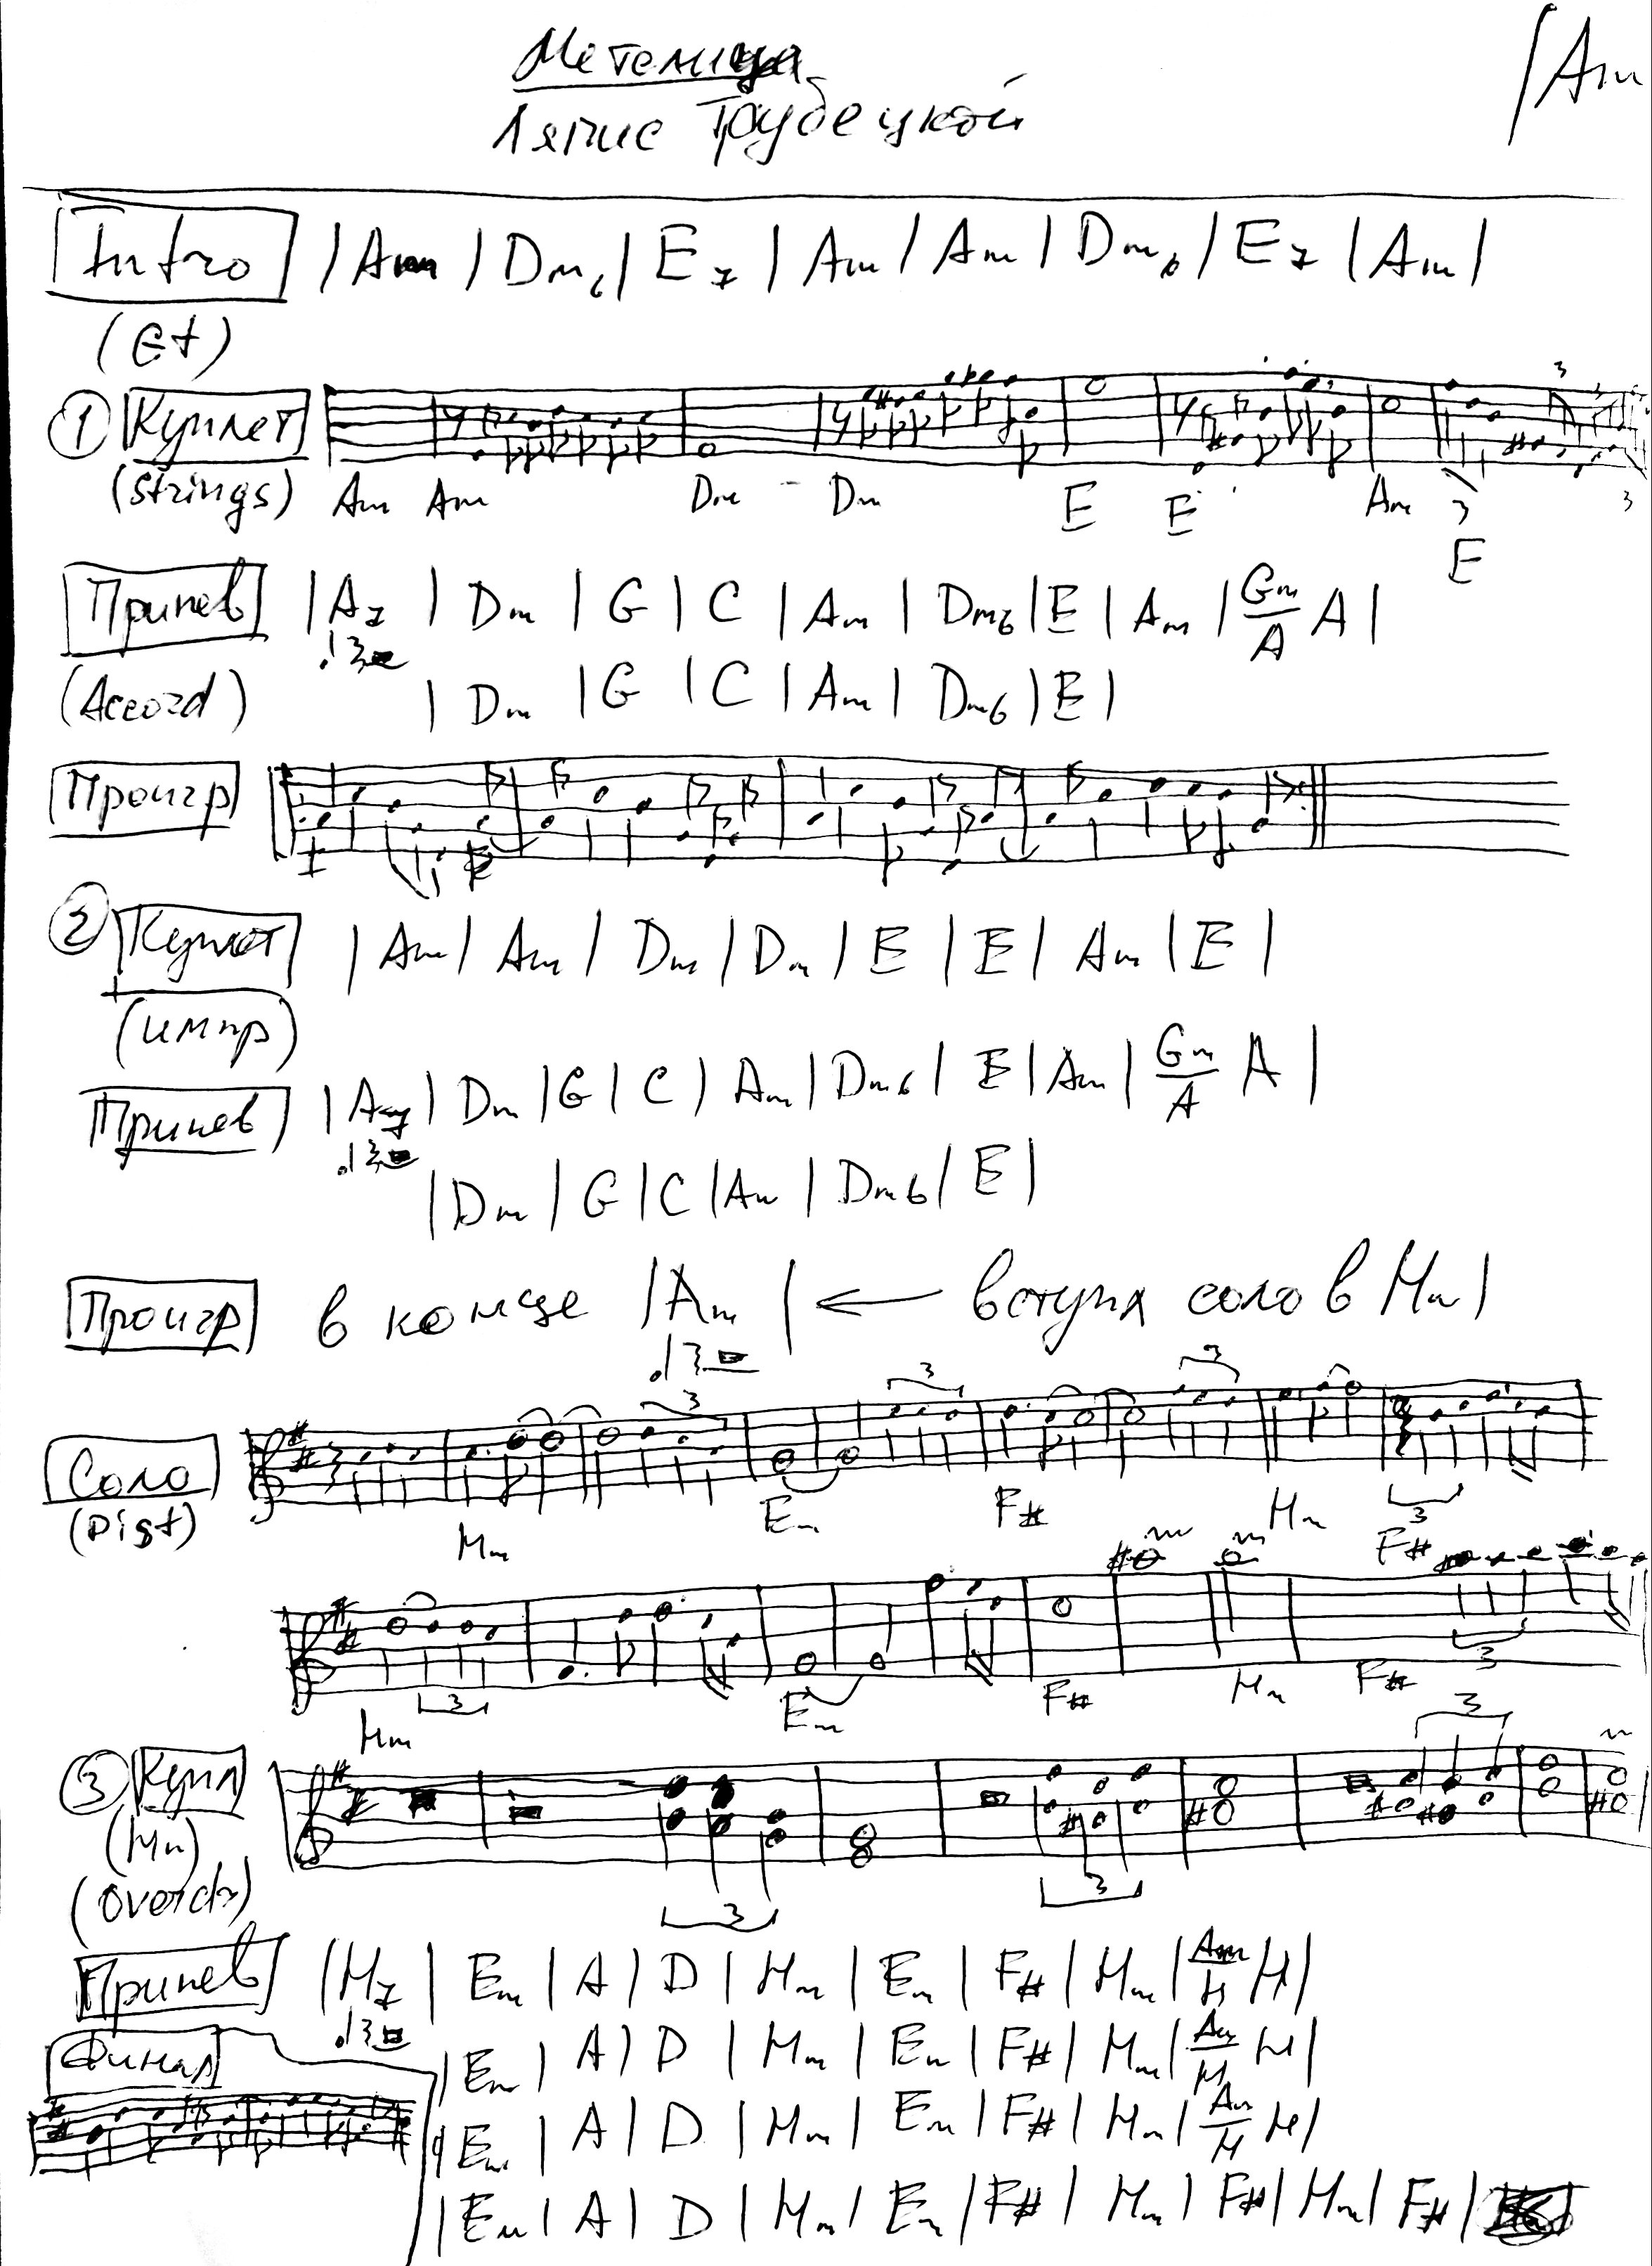 Метелица
Ляпис Трубецкой
| Am
Intro | Am | Dm6 | E7 | Am | Am | Dm6 | E7 | Am |
(Gt)
3
① Куплет
(Strings) Am Am Dm - Dm E E Am 3 3
E
Припев | A7 | Dm | G | C | Am | Dm6 | E | Am | Gm/A A |
(Accord) | Dm | G | C | Am | Dm6 | E |
Проигр
② Куплет | Am | Am | Dm | Dm | E | E | Am | E |
(импр)
Припев | A7 | Dm | G | C | Am | Dm6 | E | Am | Gm/A A |
| Dm | G | C | Am | Dm6 | E |
Проигр в конце | Am | ← вступл соло в Hm |
3 3 3
Соло
(Dist) Hm Em F# Hm 3 F#
Hm 3 Em F# Hm F# 3
3
③ Купл
(Hm)
(Overdr) 3 3
Припев | H7 | Em | A | D | Hm | Em | F# | Hm | Am/H H |
Финал | Em | A | D | Hm | Em | F# | Hm | Am/H H |
| Em | A | D | Hm | Em | F# | Hm | Am/H H |
| Em | A | D | Hm | Em | F# | Hm | F# | Hm | F# |